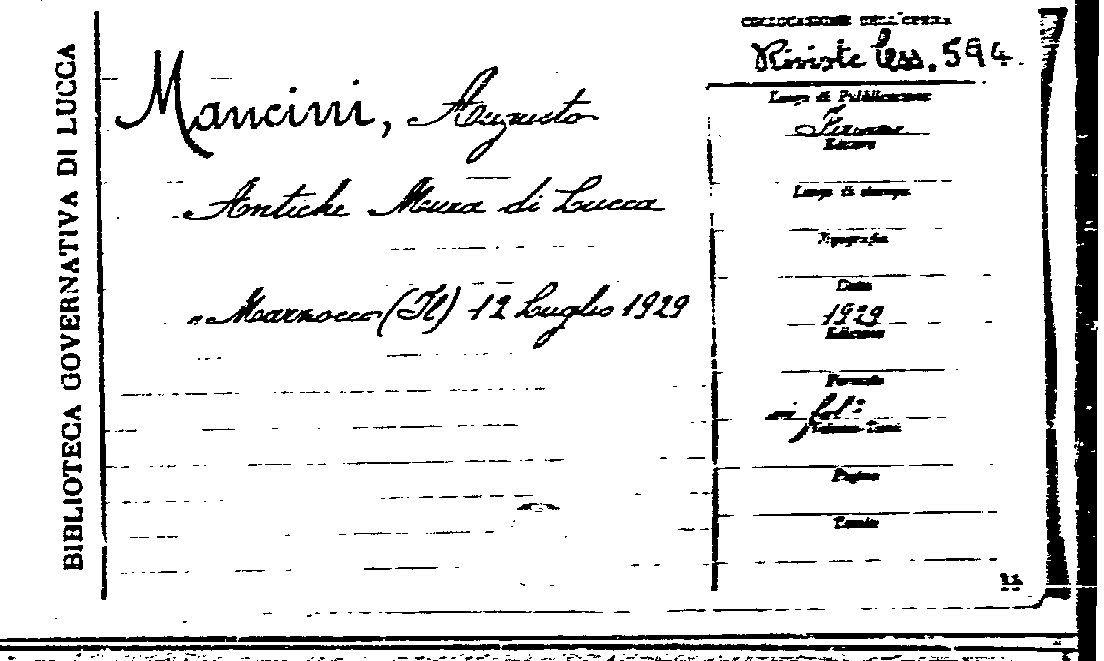 BIBLIOTECA GOVERNATIVA DI LUCCA
Mancini, Augusto
Antiche Mura di Lucca
Marzocco (Il) 12 Luglio 1929
COLLOCAZIONE DELL'OPERA
Riviste Cess. 594.
Luogo di Pubblicazione
Firenze
Editore
Luogo di stampa
Tipografia
Data
1929
Edizione
Formato
in fol:
Volume-Tomi
Pagine